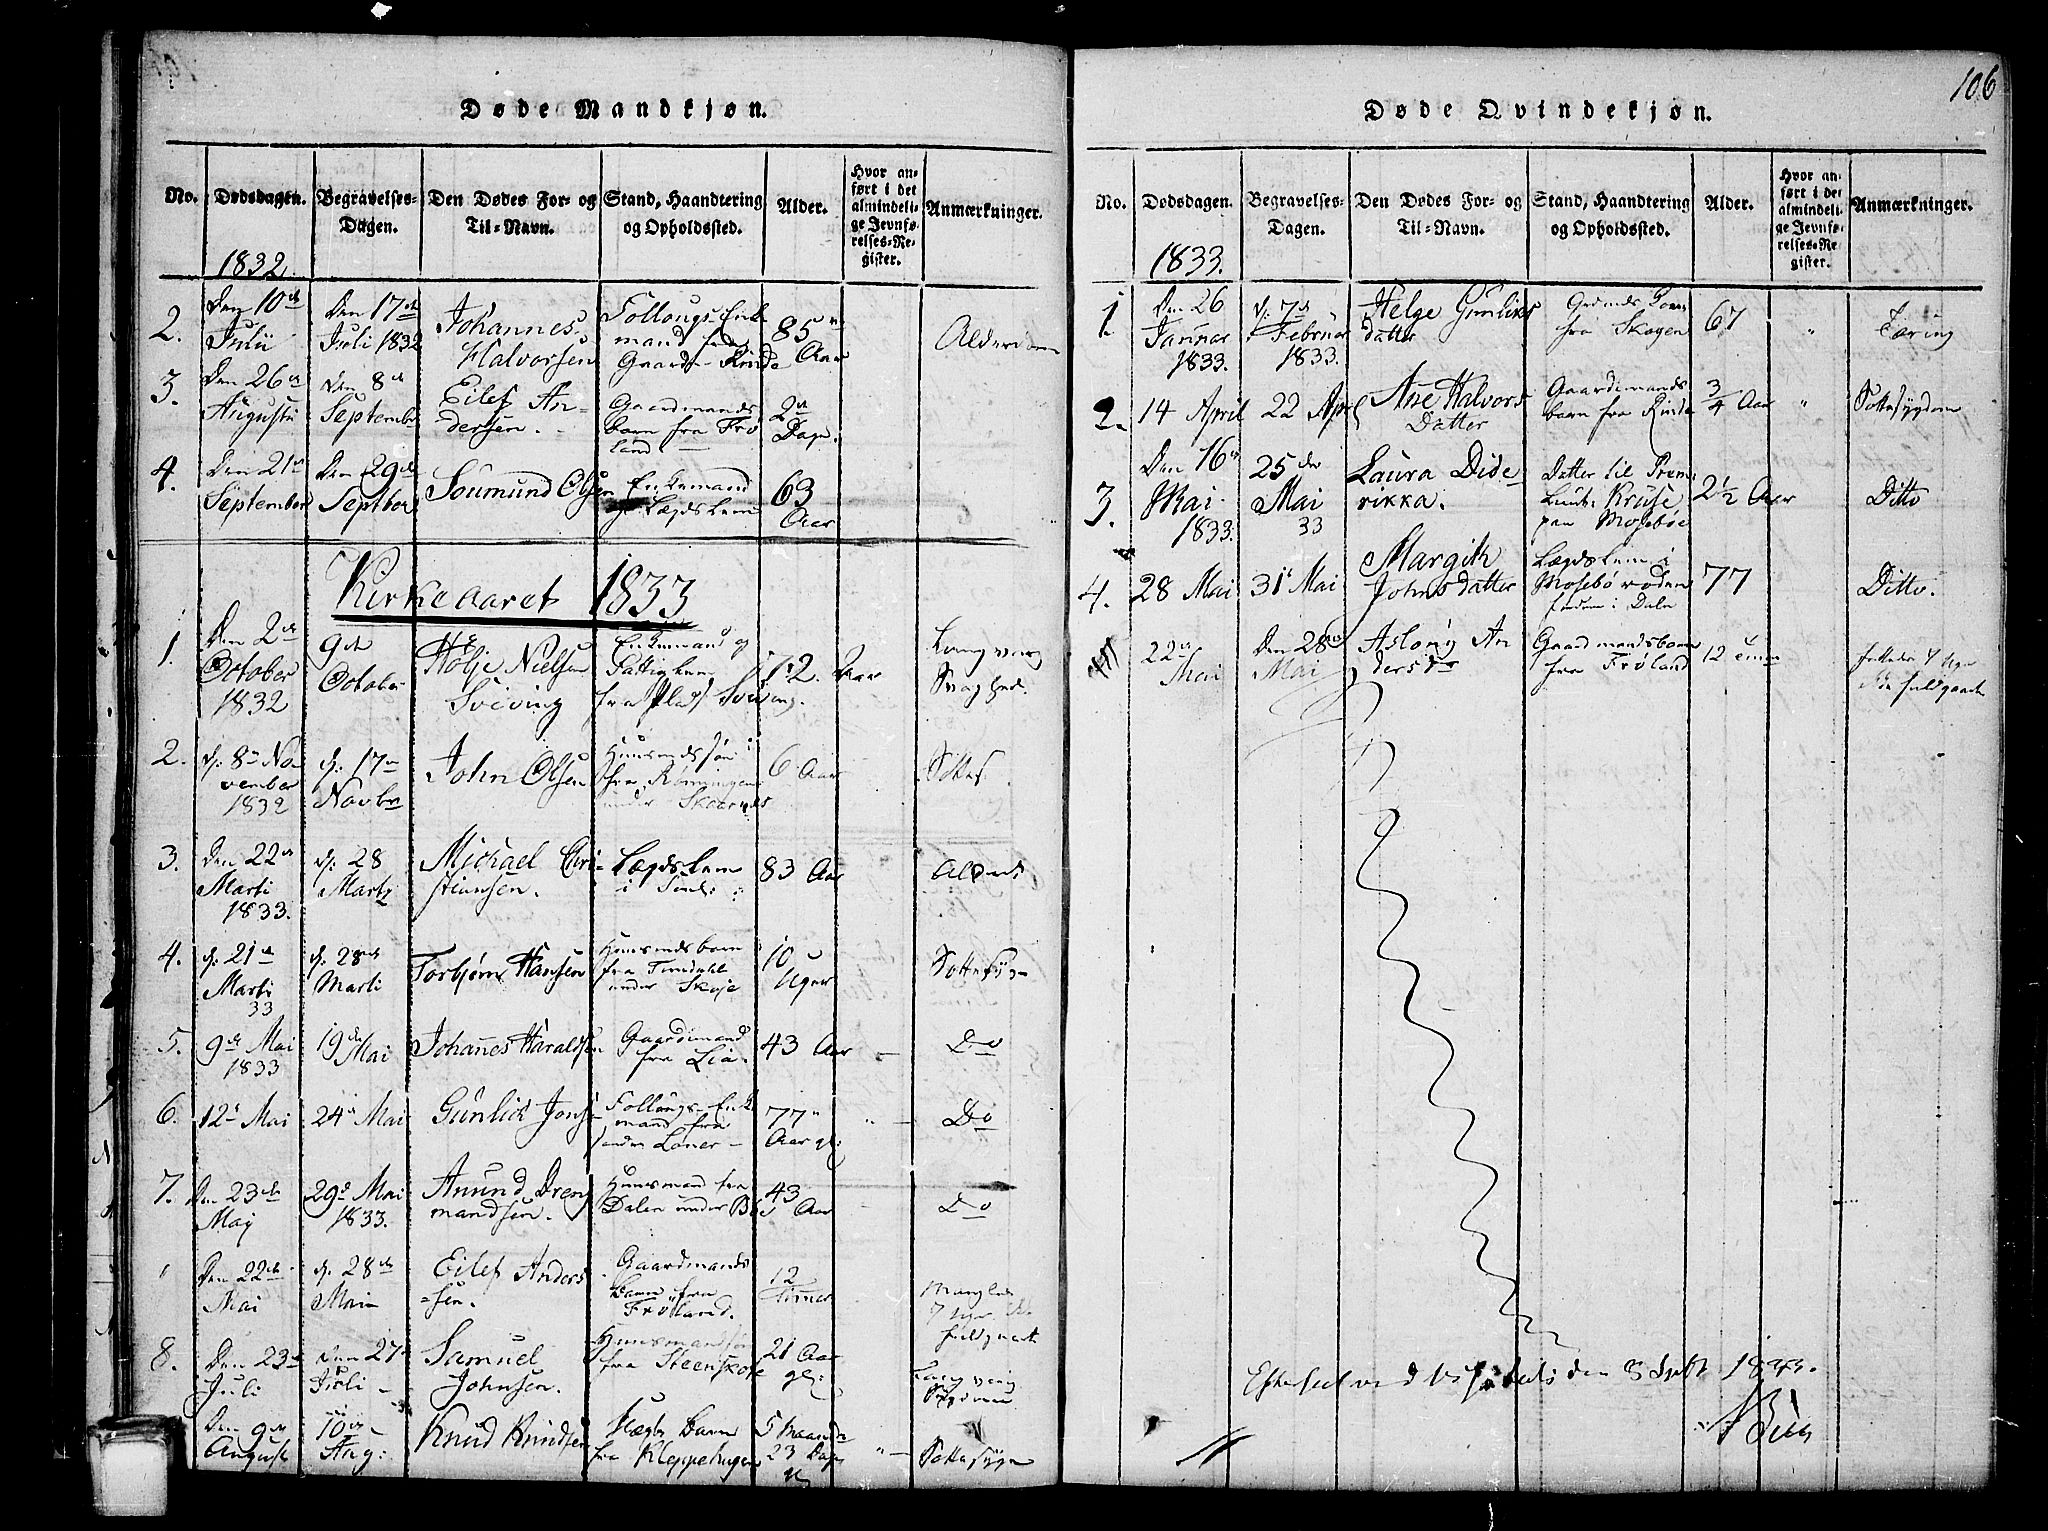 106
Døde Mandkjøn.
No.
Dødsdagen.
Begravelses-
Dagen.
Den Dødes For- og
Til-Navn.
Stand, Haandtering
og Opholdssted.
Alder.
Hvor an-
ført i det
almindeli-
ge Jevnfø-
relses-Re-
gister.
Anmærkninger.
1832
2.
Den 10de
Julii
Den 17de
Juli 1832
Johannes
Halvorsen
Follougs-Enke
mand fra
Gaard- Rinde
85
Aar
Alderdom
3.
Den 26de
Augusti
Den 8de
September
Eilef An-
dersen.
Gaardmands
barn fra Frö
land
2de
Dage.
4.
Den 21de
September
Den 29de
Septbor
Soumund Olsen
Enkemand
Lægdslem
63
Aar
Kirkeaaret 1833
1.
Den 2de
October
1832
9de
October
Hölje Nielsen
Sviving
Enkemand og
Fattiglem
fra Plads Sviving.
72. Aar
Langvarig
Svaghed.
2.
d. 8de No
vember
1832
d. 17de
Novbr
John Olsen
Huusmandssön
fra Rönningen
under Skaarnes
6 Aar
Sottes.
3.
Den 22de
Marti
1833.
d. 28
Marti
Michael Chri-
stiansen.
Lægdslem
i
83 Aar
Alderd
4.
d. 21de
Marti
33
d. 28de
Marti
Torbjörn Hansen
Huusmdsbarn
fra Timdahl
under Skoje
10
Uger
Sottesyg-
5.
9de Mai
1833
19de
Mai
Johannes Haraldsen
Gaardmand
fra Lia.
43 Aar
Do
6.
12te Mai
24de Mai
Gunlick Jons
Follougs-Enke
mand fra
söndre Löner-
77
Aar gl:
Do
7.
Den 23de
Maj
29de Mai
1833.
Anund Dreng
mandsen.
Huusmand fra
Dalen under Bö
43
Aar
Do
"
Den 22de
Mai
d. 28de
Mai
Eilef Anders
-sen.
Gaardmands
Barn fra
Fröland.
12
Timer
Manglede
7 Uger
fuldgaaet
8.
Den 23de
Juli
Den 27de
Juli
Samuel
Johnsen.
Huusmandssön
fra Steenskoje
21 Aar
gl:
Langvarig
Sygdom
Den 9de
August
10de
Aug:
Knud Knudsen
Uægte Barn
fra Kleppehagen
5 Maaneder
23 Dage
Sottesyge
Døde Qvindekjøn.
No.
Dødsdagen.
Begravelses-
Dagen.
Den Dødes For- og
Til-Navn.
Stand, Haandtering
og Opholdssted.
Alder.
Hvor an-
ført i det
almindeli-
ge Jevnfø-
relses-Re-
gister.
Anmærkninger.
1833.
1.
Den 26
Januar
1833.
d. 7de
Februar
1833.
Helge Gunliks
datter
fra Skogen
67
"
Tæring
2.
14 April
22 April
Ane Halvors
Datter
Gaardmands
barn fra Rinde
3/4 Aar
"
Sottesygdom
3.
Den 16de
Mai
1833.
25de
Mai
33
Laura Dide
rikka.
Datter til Prem
Lieut. Kruse
paa Moseböe
2 1/2 Aar
Ditto
4.
28 Mai
31te Mai
Margith
Johnsdatter
Lægdslem i
Mosebö roden
fordum i Dalen
77
Ditto.
22de
Mai
Den 28de
Mai
Aslaug An
dersdr
Gaardmandsbarn
fra Fröland
12 Timer
födtes 7 Uger
ikke fuldgaaet
Efterseet ved Visitats den 8 Septb 1833.